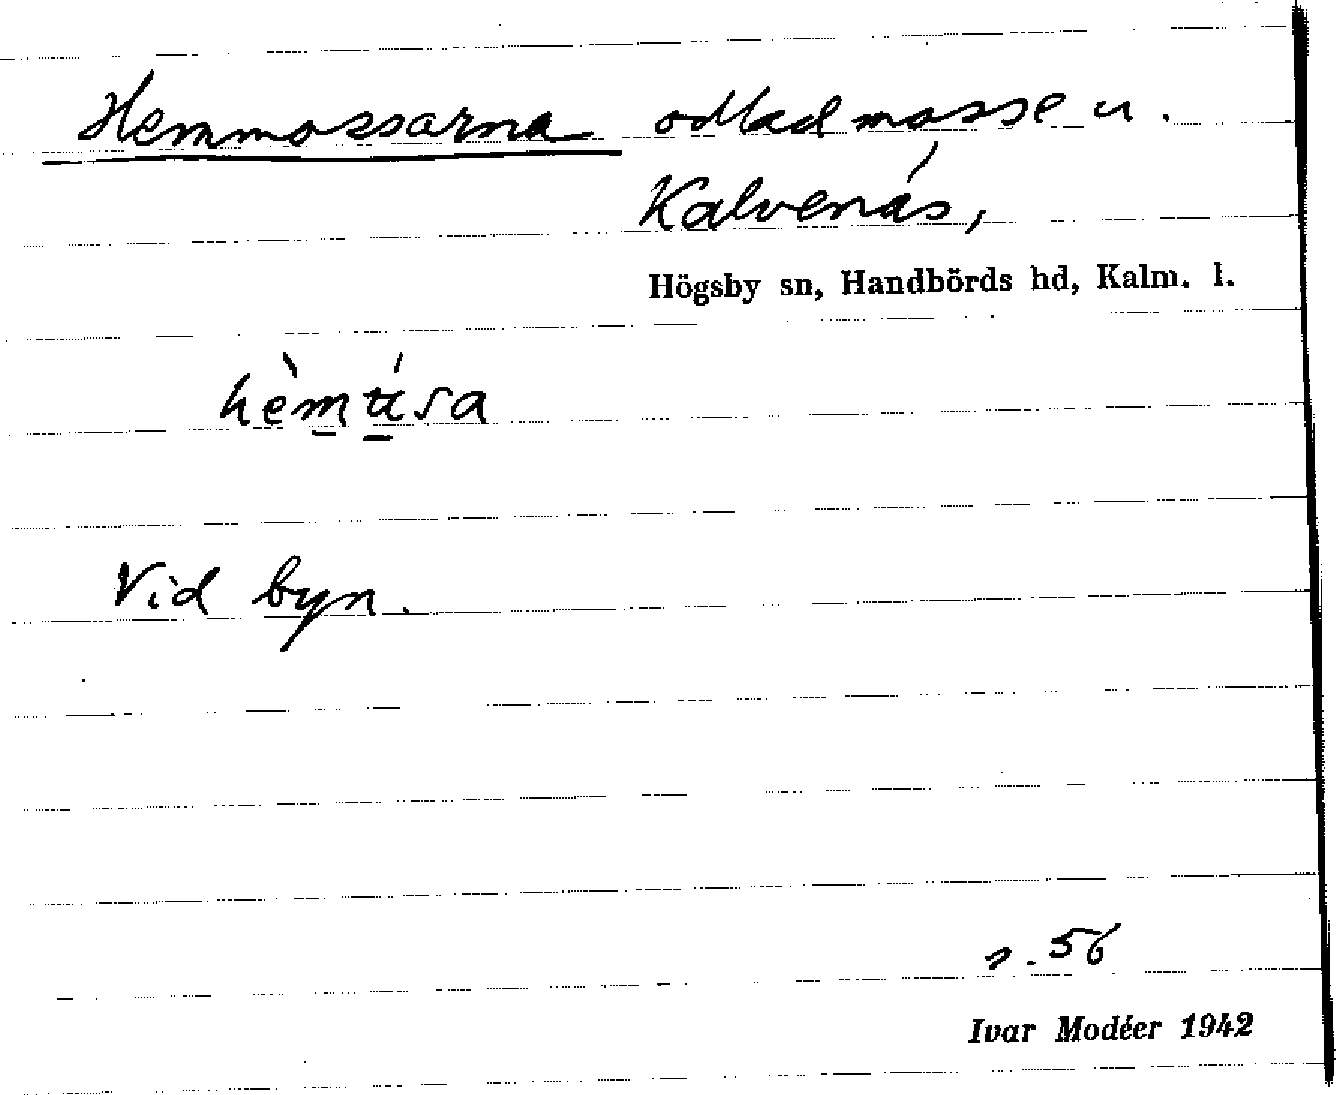 Hemmossarna odlad mosse u.
Kalvenäs,
Högsby sn, Handbörds hd, Kalm. l.
Vid byn.
s. 56
Ivar Modéer 1942